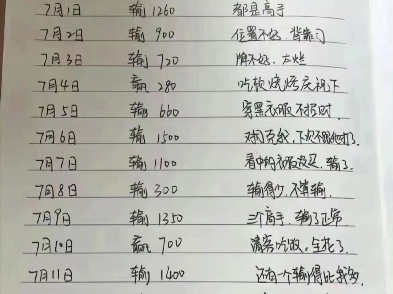 7月1日 输1260 都是高手
7月2日 输900 位置不好,背靠门
7月3日 输720 牌不好,太烂
7月4日 赢280 吃顿烧烤庆祝下
7月5日 输660 穿黑衣服不招财
7月6日 输1500 对门克我,下次不跟他打了.
7月7日 输1100 看中的衣服没买,输了.
7月8日 输300 输得少,不算输.
7月9日 输1350 三个高手,输了正常
7月10日 赢700 请客吃饭,全花了.
7月11日 输1400 还有一个输得比我多.